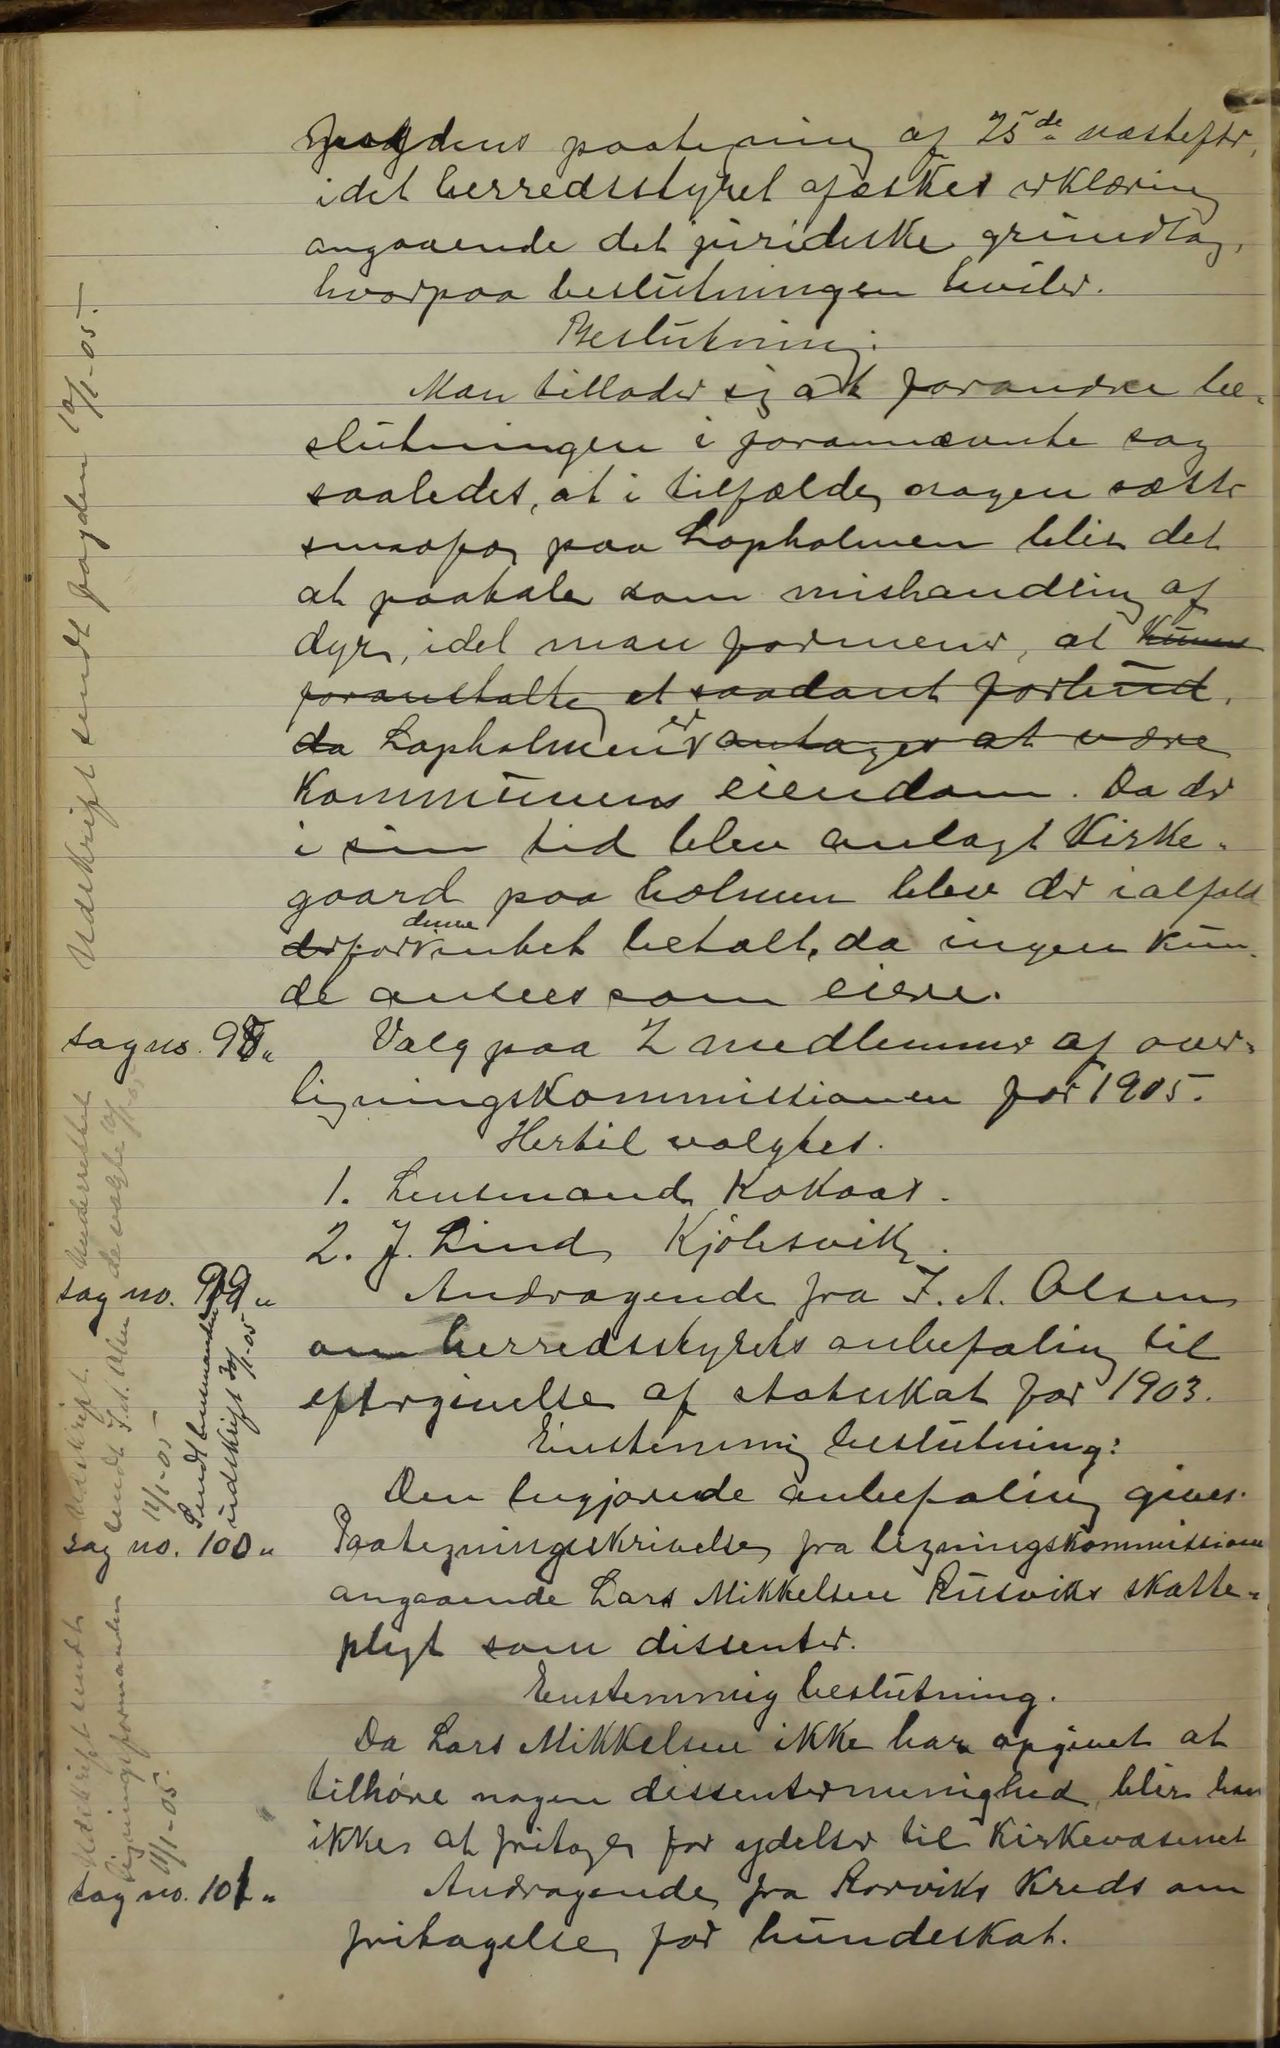 fogdens paategning af 25de næstefter,
idet herredsstyret afæskes erklæring
angaaende det juridiske grundlag,
hvorpaa beslutningen hviler.
Beslutning:
Man tillader sig at forandre be-
slutningen i forannævnte sag
saaledes, at i tilfælde nogen sætte
smaafæ paa Lapholmen blir det
at paatale som mishandling af
dyr, idet man formener, at kunne
foranstalte et saadant forbud,
da Lapholmen er antages at være
kommunens eiendom. Da der
i sin tid blev anlagt kirke-
gaard paa holmen blev der ialfald
derfor denne intet betalt, da ingen kun-
de ansees som eiere.
Udskrift sendt fogden 10/1-05.
sag no. 98"
Valg paa 2 medlemmer af over-
ligningskommissionen for 1905.
Hertil valgtes.
1. Lensmand Kokaas.
2. J. Lind Kjølsvik.
Underrettet
de valgte
sag no. 99"
Andragende fra J. A. Olsen
om herredsstyrets anbefaling til
eftergivelse af statsskat for 1903.
Enstemmig beslutning:
Den begjærede anbefaling gives.
Udskrift
sendt J. A. Olsen
12/1-05
Sendt lensmanden
udskrift 30/1-05
sag no. 100"
Paategningsskrivelse fra ligningskommissionen
angaaende Lars Mikkelsen Rusviks skatte-
pligt som dissenter.
Enstemmig beslutning.
Da Lars Mikkelsen ikke har opgivet at
tilhøre nogen dissentermenighed blir han
ikke at fritage for ydelser til kirkevæsenet
Udskrift sendt
ligningsformanden
11/1-05.
sag no. 101"
Andragende fra Rorviks kreds om
fritagelse for hundeskat.